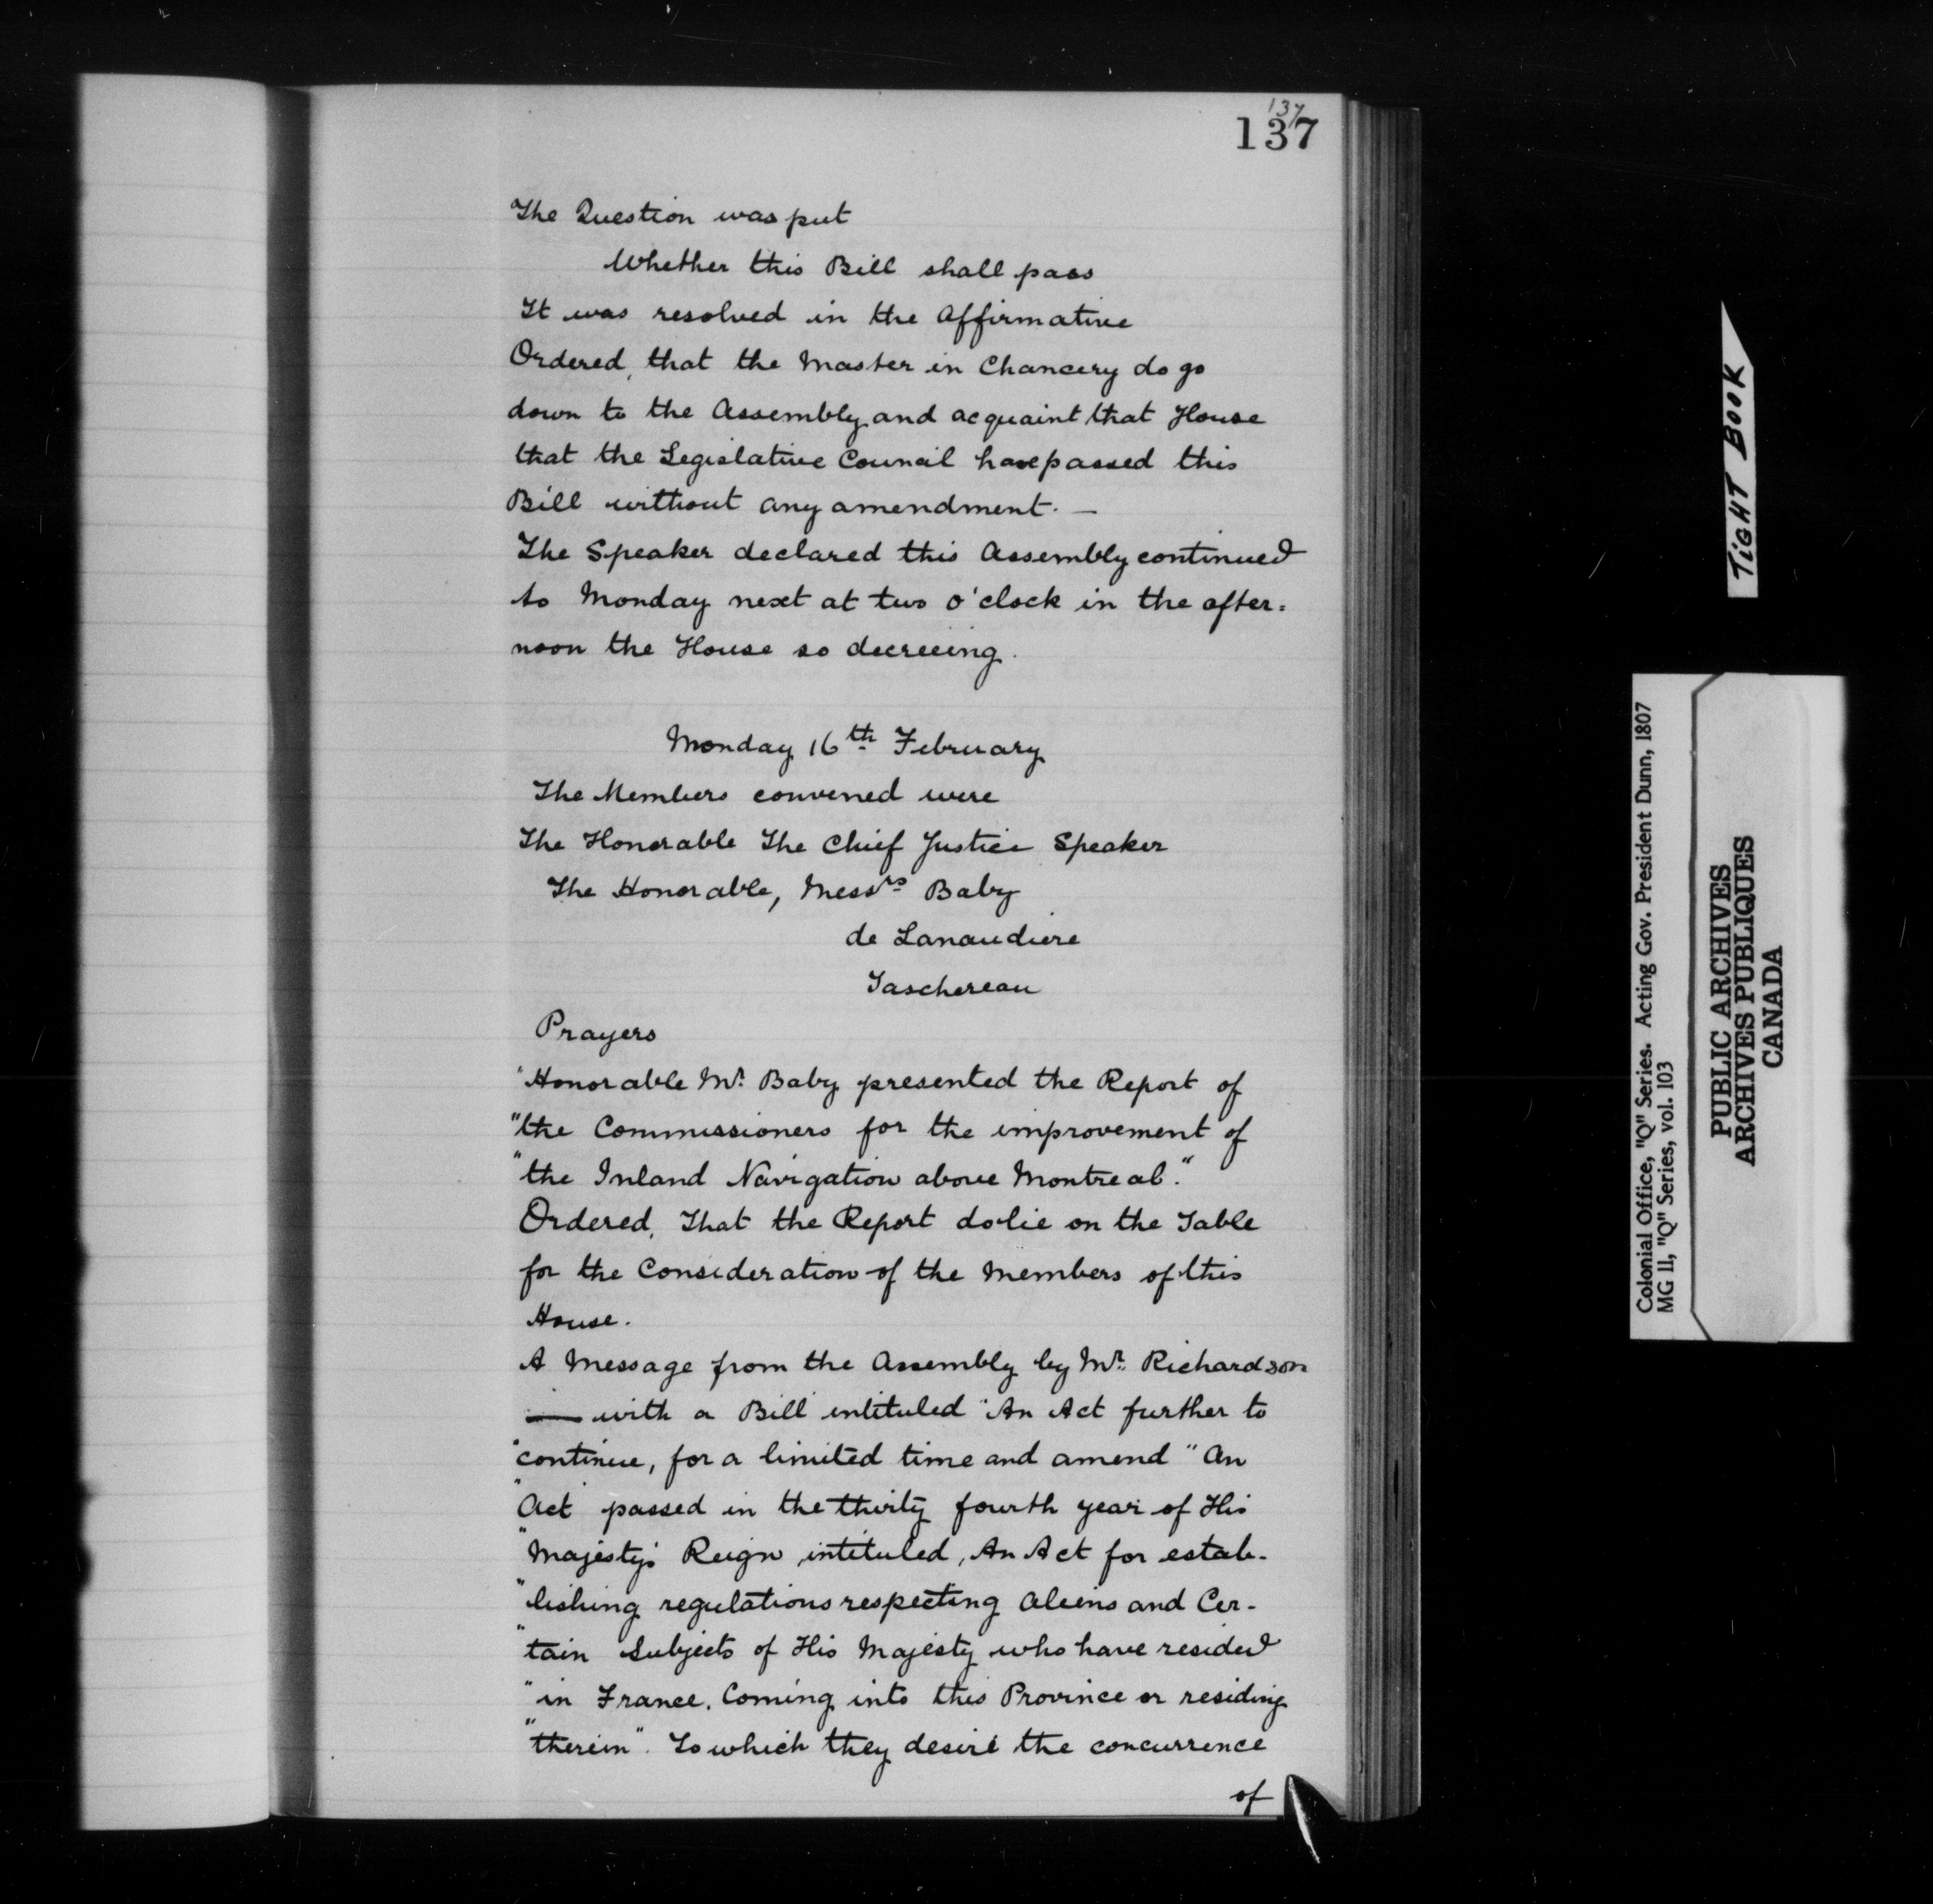 137
137
The Question was put
Whether this Bill shall pass
It was resolved in the affirmative
Ordered, that the Master in Chancery do go
down to the Assembly and acquaint that House
that the Legislative Council have passed this
Bill without any amendment. —
The Speaker declared this Assembly continued
to Monday next at two o'clock in the after=
noon the House so decreeing.
Monday 16th February
The Members convened were
The Honorable The Chief Justice Speaker
The Honorable, Messrs Baby
de Lanaudiere
Taschereau
Prayers
"Honorable Mr. Baby presented the Report of
"the Commissioners for the improvement of
"the Inland Navigation above Montreal."
Ordered, That the Report do lie on the Table
for the Consideration of the Members of this
House.
A Message from the Assembly by Mr. Richardson
— with a Bill intituled "An Act further to
"continue, for a limited time and amend "An
"Act passed in the thirty fourth year of His
"Majesty's Reign, intituled, An Act for estab-
"lishing regulations respecting Aliens and Cer-
"tain Subjects of His Majesty who have resided
"in France. Coming into this Province or residing
"therein". To which they desire the concurrence
of
TIGHT BOOK
Colonial Office, "Q" Series. Acting Gov. President Dunn, 1807
MG 11, "Q" Series, vol. 103
PUBLIC ARCHIVES
ARCHIVES PUBLIQUES
CANADA